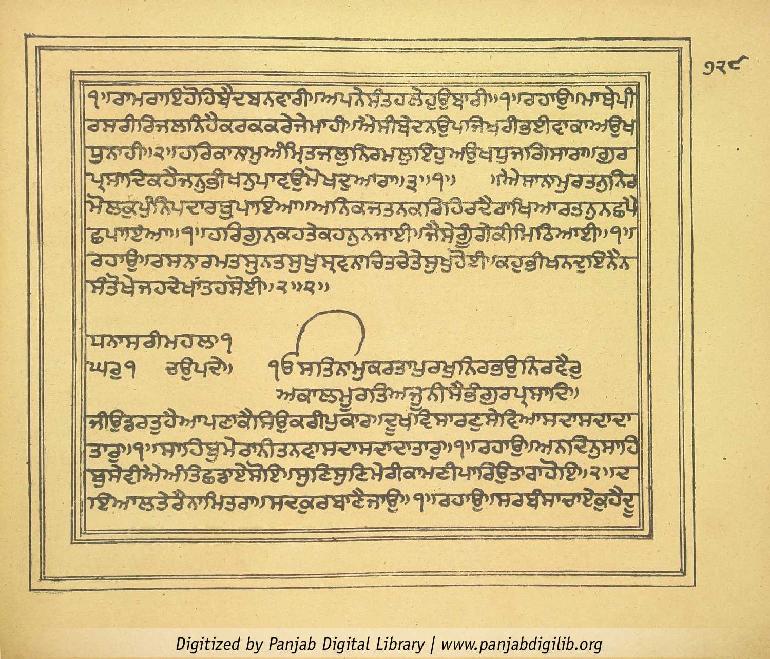 ੭੨੮
੧॥ਰਾਮਰਾਇਹੋਹਿਬੈਦਬਨਵਾਰੀ॥ਅਪਨੇਸੰਤਹਲੇਹੁਉਬਾਰੀ॥੧॥ਰਹਾਉ॥ਮਾਥੇਪੀ
ਰਸਰੀਰਿਜਲਨਿਹੈਕਰਕਕਰੇਜੇਮਾਹੀ॥ਐਸੀਬੇਦਨਉਪਜਿਖਰੀਭਈਵਾਕਾਅਉਖ
ਧੁਨਾਹੀ॥੨॥ਹਰਿਕਾਨਾਮੁਅੰਮ੍ਰਿਤਜਲੁਨਿਰਮਲੁਇਹੁਅਉਖਧੁਜਗਿਸਾਰਾ॥ਗੁਰ
ਪ੍ਰਸਾਦਿਕਹੈਜਨੁਭੀਖਨੁਪਾਵਉਮੋਖਦੁਆਰਾ॥੩॥੧॥ ॥ਐਸਾਨਾਮੁਰਤਨੁਨਿਰ
ਮੋਲਕੁਪੁੰਨਿਪਦਾਰਥੁਪਾਇਆ॥ਅਨਿਕਜਤਨਕਰਿਹਿਰਦੈਰਾਖਿਆਰਤਨੁਨਛਪੈ
ਛਪਾਇਆ॥੧॥ਹਰਿਗੁਨਕਹਤੇਕਹਨੁਨਜਾਈ॥ਜੈਸੇਗੂੰਗੇਕੀਮਿਠਿਆਈ॥੧॥
ਰਹਾਉ॥ਰਸਨਾਰਮਤਸੁਨਤਸੁਖੁਸ੍ਰਵਨਾਚਿਤਚੇਤੇਸੁਖੁਹੋਈ॥ਕਹੁਭੀਖਨਦੁਇਨੈਨ
ਸੰਤੋਖੇਜਹਦੇਖਾਂਤਹਸੋਈ॥੨॥੨॥
ਧਨਾਸਰੀਮਹਲਾ੧
ਘਰੁ੧ ਚਉਪਦੇ॥ ੴਸਤਿਨਾਮੁਕਰਤਾਪੁਰਖੁਨਿਰਭਉਨਿਰਵੈਰੁ
ਅਕਾਲਮੂਰਤਿਅਜੂਨੀਸੈਭੰਗੁਰਪ੍ਰਸਾਦਿ॥
ਜੀਉਡਰਤੁਹੈਆਪਣਾਕੈਸਿਉਕਰੀਪੁਕਾਰ॥ਦੂਖਵਿਸਾਰਣੁਸੇਵਿਆਸਦਾਸਦਾਦਾ
ਤਾਰੁ॥੧॥ਸਾਹਿਬੁਮੇਰਾਨੀਤਨਵਾਸਦਾਸਦਾਦਾਤਾਰੁ॥੧॥ਰਹਾਉ॥ਅਨਦਿਨੁਸਾਹਿ
ਬੁਸੇਵੀਐਅੰਤਿਛਡਾਏਸੋਇ॥ਸੁਣਿਸੁਣਿਮੇਰੀਕਾਮਣੀਪਾਰਿਉਤਾਰਾਹੋਇ॥੨॥ਦ
ਇਆਲਤੇਰੈਨਾਮਿਤਰਾ॥ਸਦਕੁਰਬਾਣੈਜਾਉ॥੧॥ਰਹਾਉ॥ਸਰਬੰਸਾਚਾਏਕੁਹੈਦੂ
Digitized by Panjab Digital Library | www.panjabdigilib.org